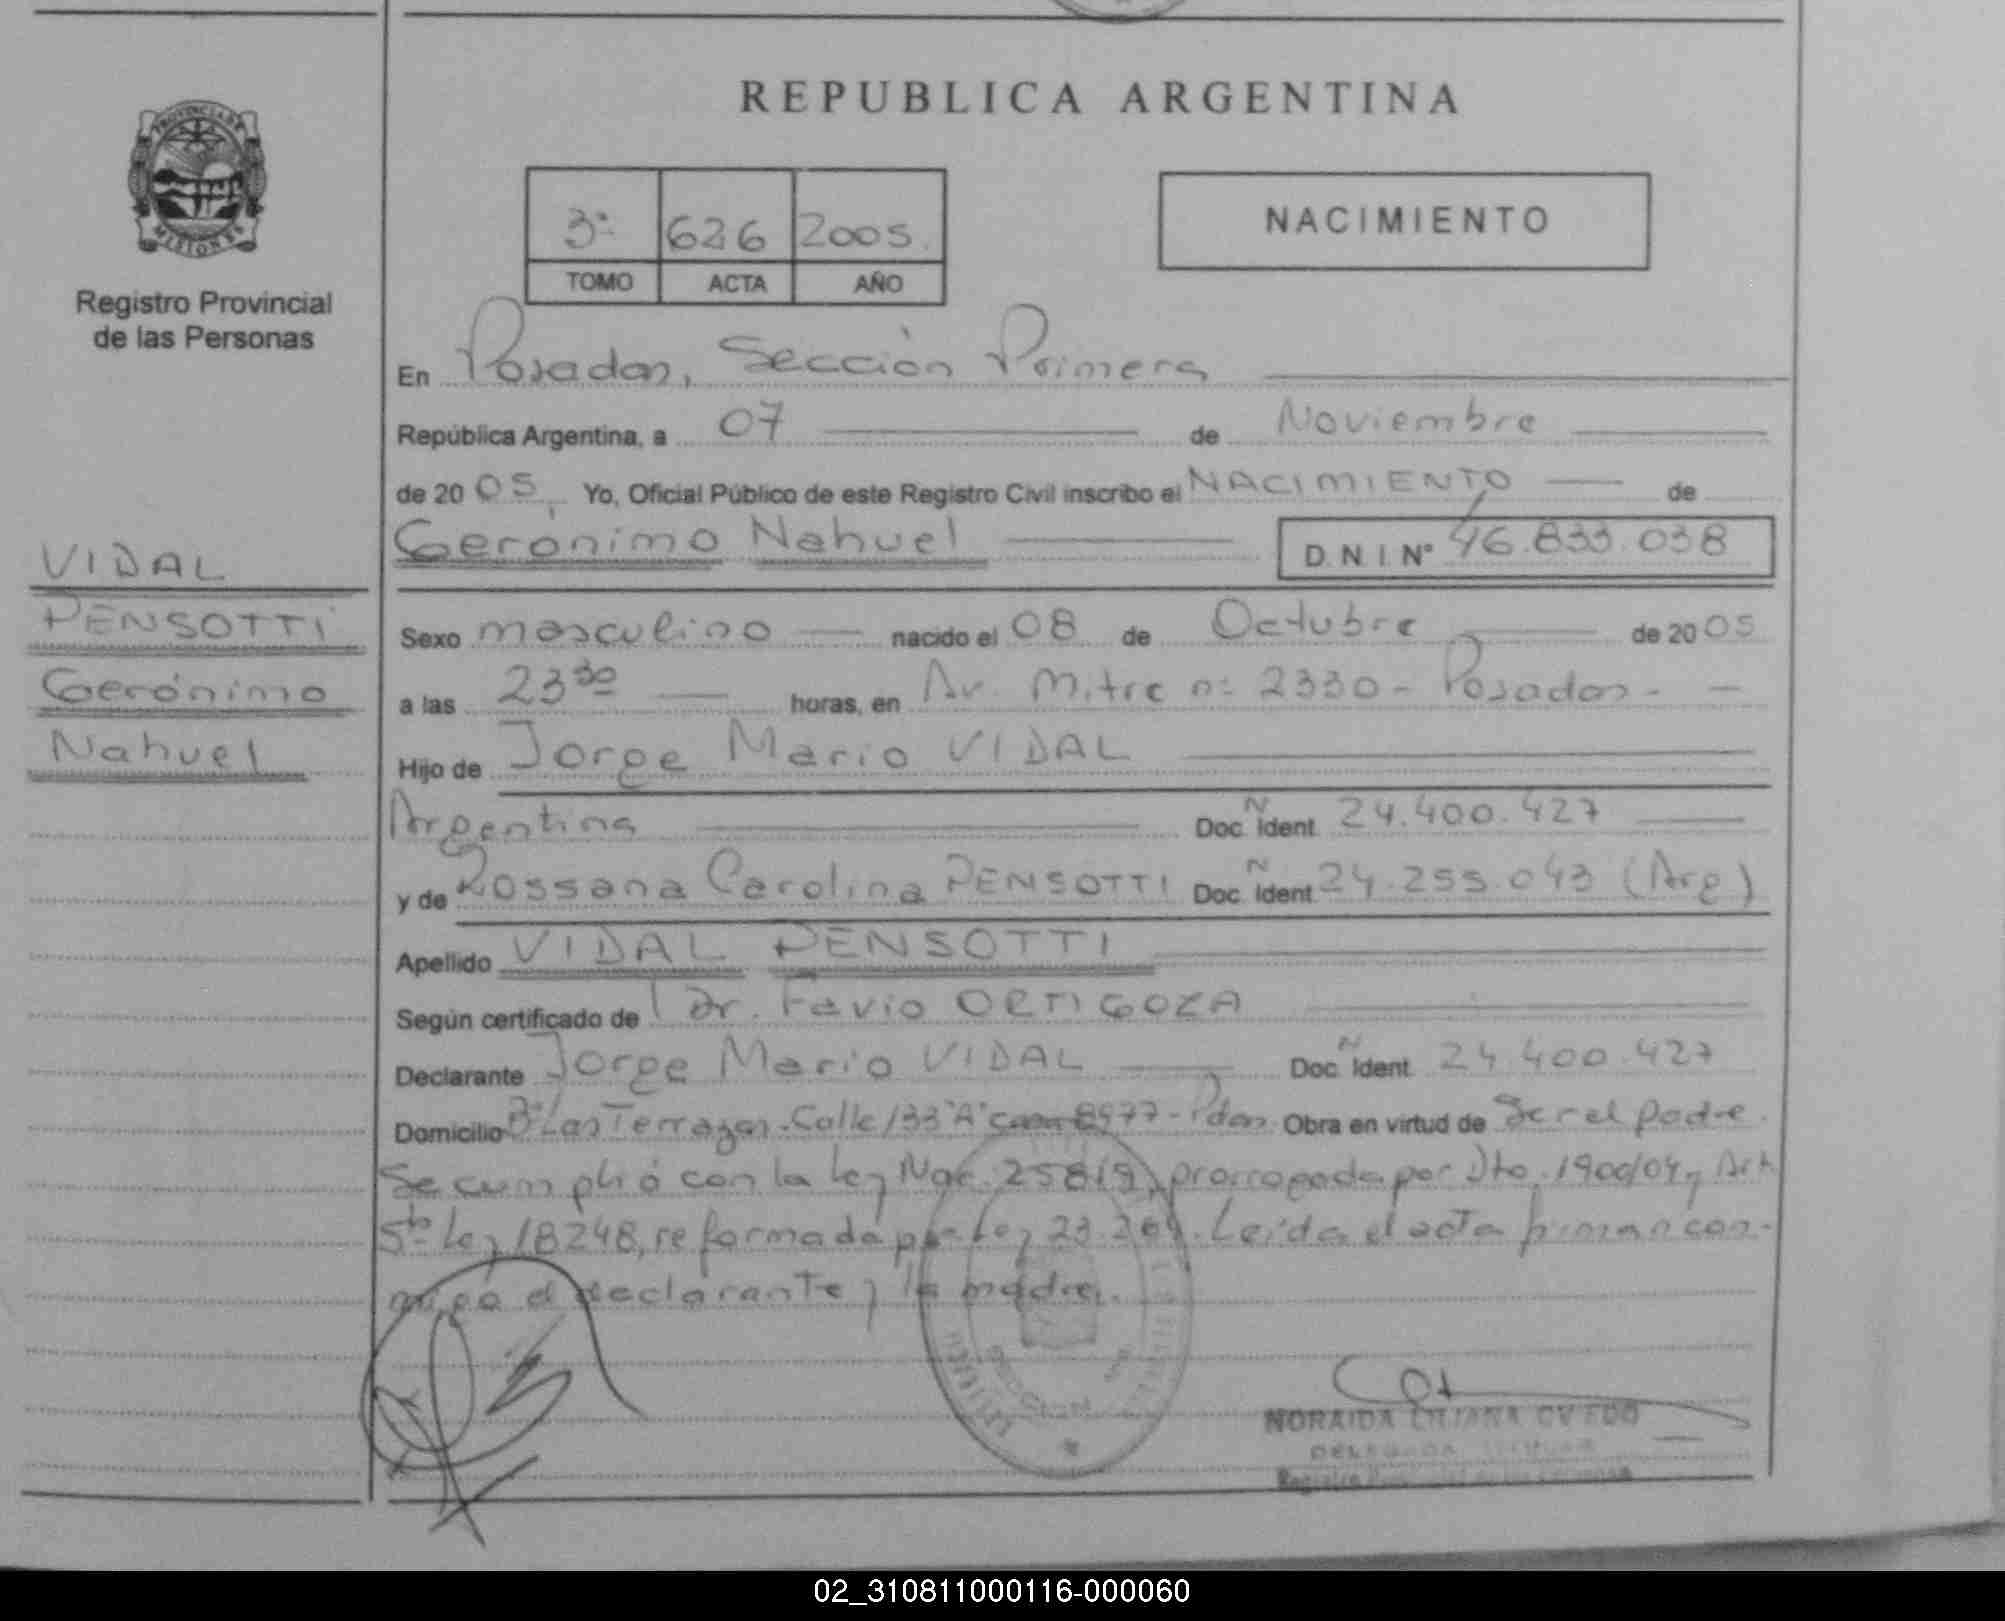 REPUBLICA ARGENTINA
PROVINCIA DE
MISIONES
Registro Provincial
de las Personas
3º 626 2005.
TOMO ACTA AÑO
NACIMIENTO
En Posadas, Sección Primera
República Argentina, a 07 de Noviembre
de 2005, Yo, Oficial Público de este Registro Civil inscribo el NACIMIENTO de
Gerónimo Nahuel D.N.I. Nº 46.833.038
VIDAL
PENSOTTI
Gerónimo
Nahuel
Sexo masculino nacido el 08 de Octubre de 2005
a las 23 30 horas, en Av. Mitre nº 2330 - Posadas -
Hijo de Jorge Mario VIDAL
Argentina Doc. N Ident. 24.400.427
y de Rossana Carolina PENSOTTI Doc. N Ident. 24.255.043 (Arg)
Apellido VIDAL PENSOTTI
Según certificado de Dr. Favio ORTIGOZA
Declarante Jorge Mario VIDAL Doc. N Ident. 24.400.427
Domicilio Bº Las Terrazas - Calle 133 "A" casa 8977 - Pdas. Obra en virtud de Ser el padre.
Se cumplió con la Ley Nac. 25819, prorrogada por Dto. 1900/04 y Art.
5to Ley 18248, reformada por Ley 23.264. Leída el acta firman con-
migo el declarante y la madre.
NORAIDA LILIANA OVIEDO
DELEGADA TITULAR
Registro Provincial de las Personas
02_310811000116-000060